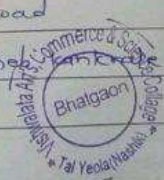 oad
Vishwalata Arts, Commerce & Science College
Bhatgaon
Tal Yeola (Nashik)